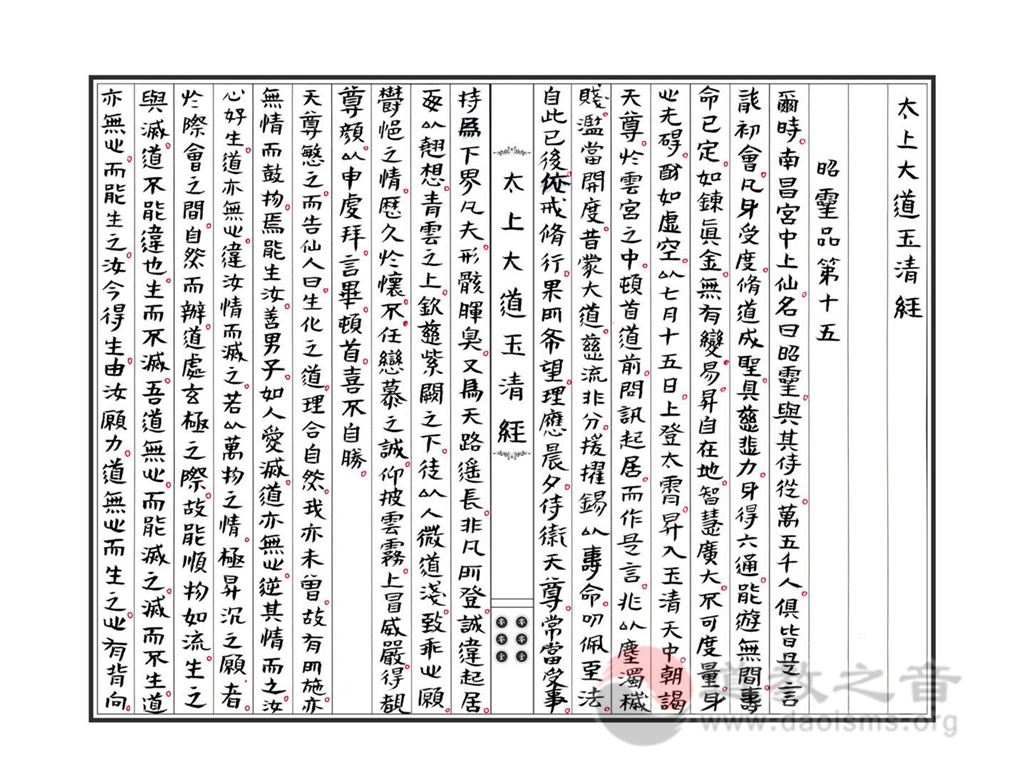 太上大道玉清經
昭靈品第十五
爾時。南昌宮中上仙。名曰昭靈。與其侍從。萬五千人。俱皆是言
詠初會。凡身受度。脩道成聖。具慈悲力。身得六通。能遊無間。壽
命已定。如鍊真金。無有變易。昇自在地。智慧廣大。不可度量。身
心无礙。猶如虛空。以七月十五日。上登太霄。昇入玉清天中。朝謁
天尊。於雲宮之中。頓首道前。問訊起居。而作是言。兆以塵濁穢
賤。濫當開度。昔蒙大道。慈流非分。援擢錫以壽命。叨佩至法。
自此已後。依戒脩行。果所希望。理應晨夕侍衛天尊。常當受事。
太上大道玉清經
持為下界凡夫。形骸暉臭。又為天路遙長。非凡所登。誠違起居。
每以翹想。青雲之上。欽慈紫闕之下。徒以人微道淺。致乖心願。
鬱悒之情。歷久於懷。不任戀慕之誠。仰披雲霧。上冒威嚴。得覩
尊顏。以申虔拜。言畢頓首。喜不自勝。
天尊慜之。而告仙人曰。生化之道。理合自然。我亦未曾。故有所施。亦
無情而鼓物。焉能生汝。善男子。如人愛滅。道亦無心。逆其情而之。汝
心好生。道亦無心。違汝情而滅之。若以萬物之情。極昇沉之願者。
於際會之間。自然而辦。道處玄極之際。故能順物如流。生之
與滅。道不能違也。生而不滅。吾道無心。而能滅之。滅而不生。道
亦無心。而能生之。汝今得生。由汝願力。道無心而生之。心有背向。
道教之音
www.daoisms.org